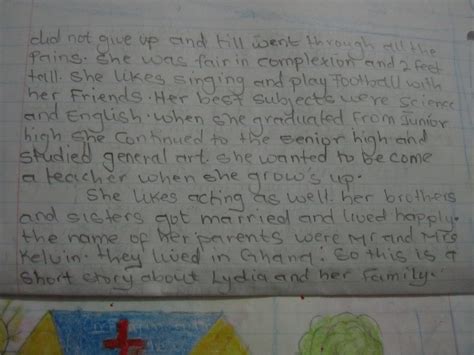 did not give up and till went through all the
Pains. She was fair in complexion and 2 feet
tall. She likes singing and play Football with
her Friends. Her best subjects were science
and English. when she graduated from Junior
high she continued to the senior high and
studied general art. she wanted to be come
a teacher when she grow's up.
She likes acting as well. her brothers
and sisters got married and lived happly.
the name of her parents were Mr and Mrs
Kelvin. they lived in Ghana! So this is a
short story about Lydia and her Family.